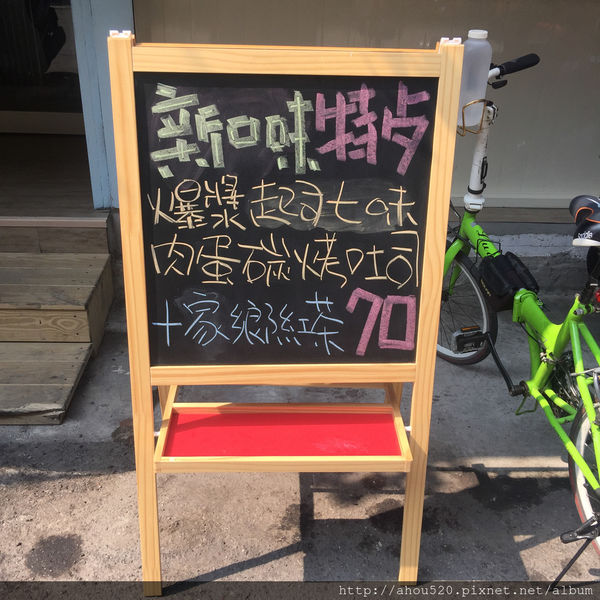 新口味特点
爆漿起司七味
肉蛋碳烤吐司
+家鄉紅茶 70
http://ahou520.pixnet.net/album